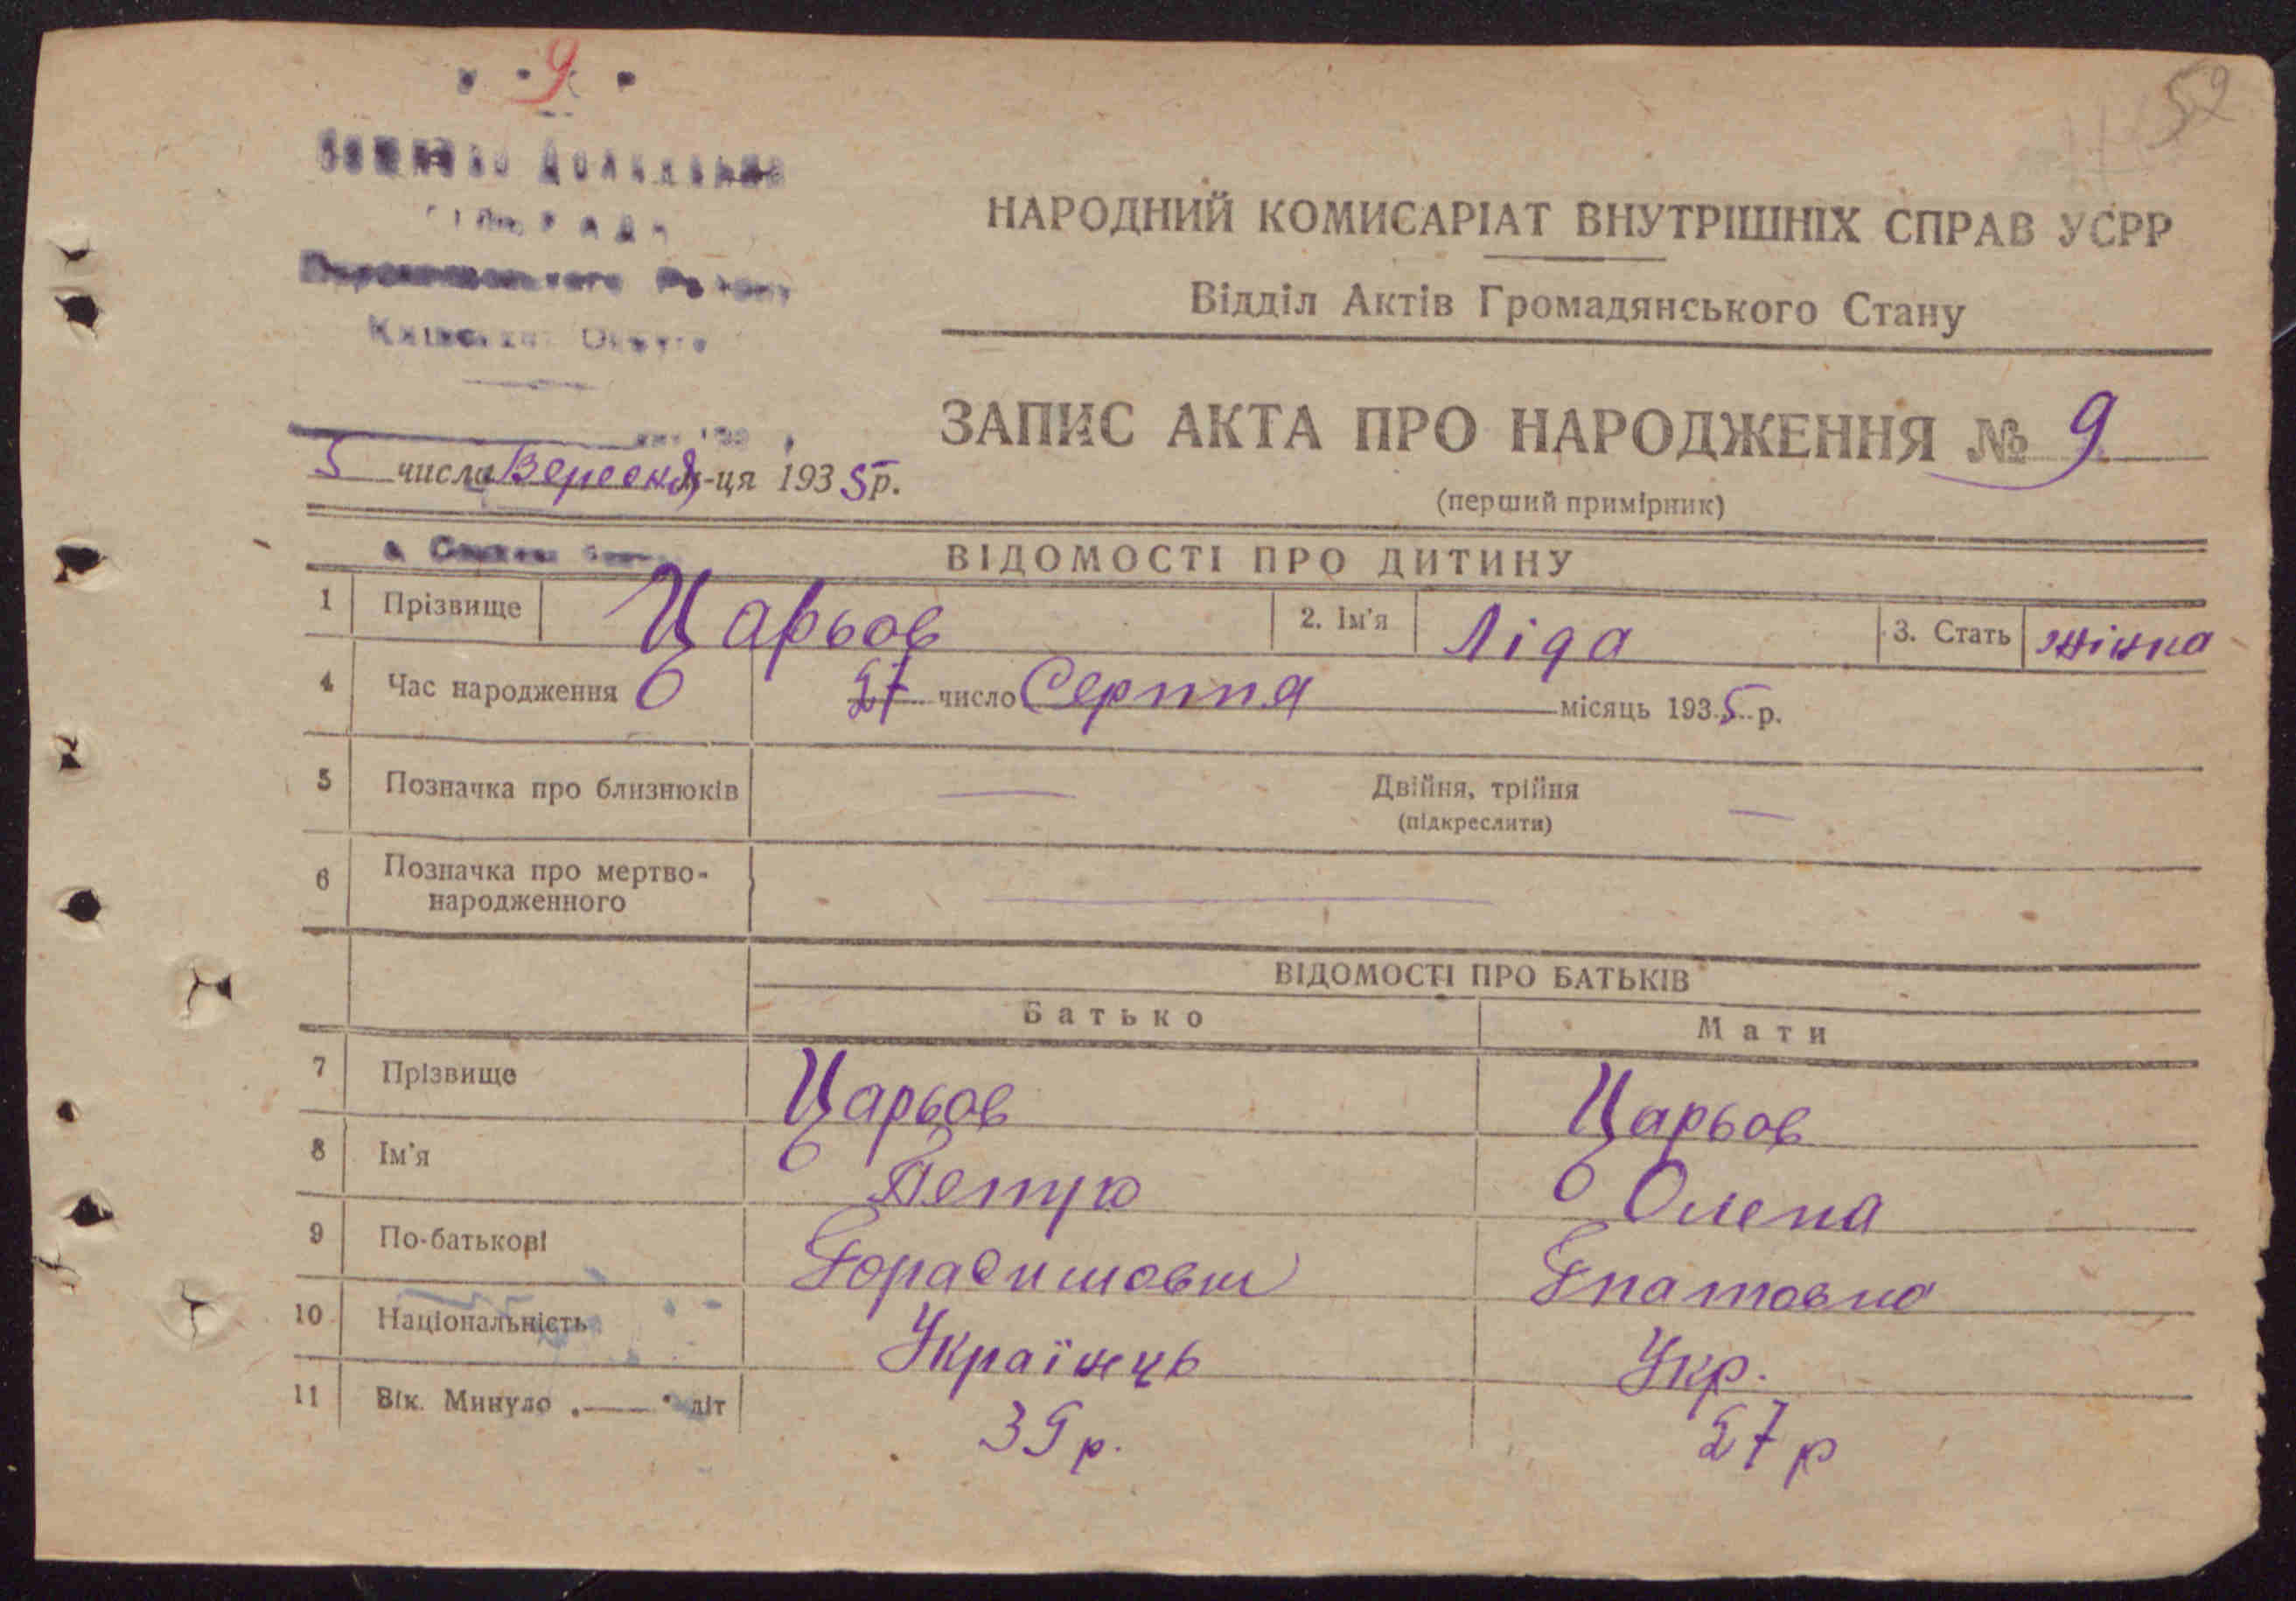 9
52
НАРОДНИЙ КОМИСАРІАТ ВНУТРІШНІХ СПРАВ УСРР
Відділ Актів Громадянського Стану
ЗАПИС АКТА ПРО НАРОДЖЕННЯ № 9
5 числа Вересня м-ця 1935 р.
(перший примірник)
ВІДОМОСТІ ПРО ДИТИНУ
1 Прізвище Царьов 2. Ім'я Ліда 3. Стать жінка
4 Час народження 27 число Серпня місяць 1935 р.
5 Позначка про близнюків — Двійня, трійня —
(підкреслити)
6 Позначка про мертво-
народженного —
ВІДОМОСТІ ПРО БАТЬКІВ
Батько Мати
7 Прізвище Царьов Царьов
8 Ім'я Петро Олена
9 По-батькові Горасимович Гнатовна
10 Національність Українець Укр.
11 Вік. Минуло „—" літ 39 р. 27 р